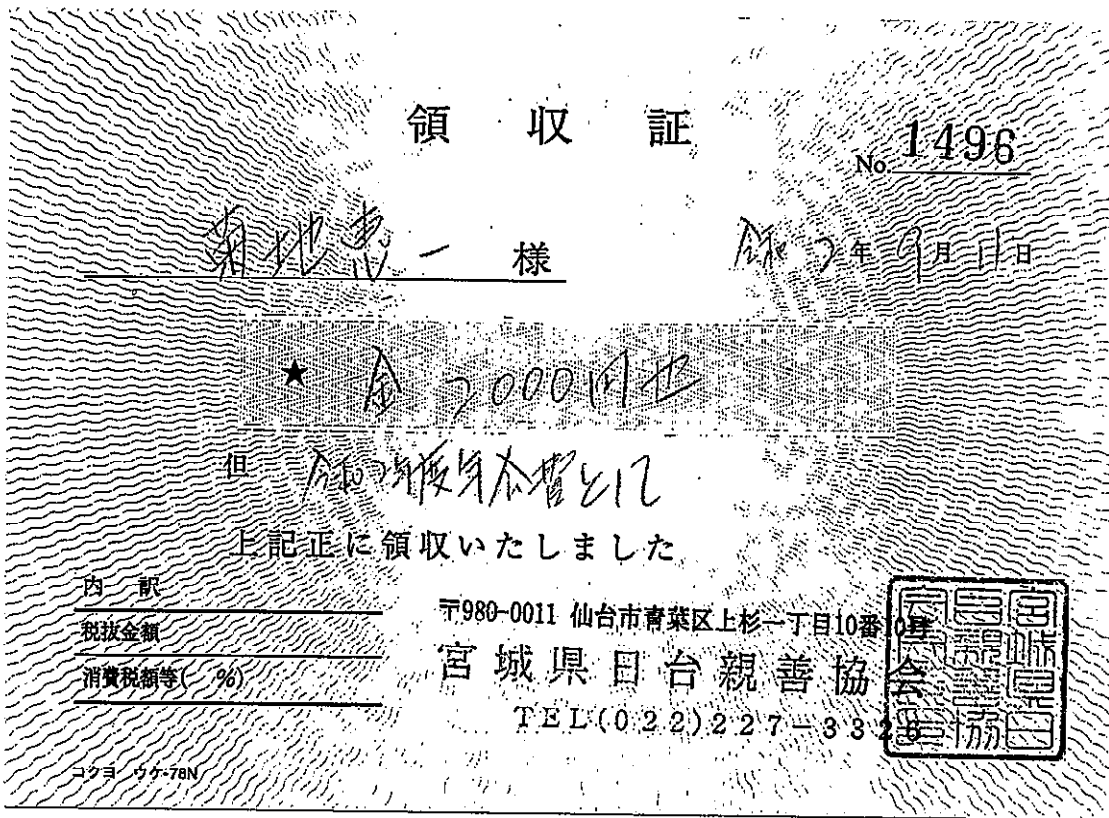 領収証
No. 1496
菊地恵一 様
令和2年9月11日
★ 金2000円也
但 令和2年度年会費として
上記正に領収いたしました
内訳
税抜金額
消費税額等( %)
〒980-0011 仙台市青葉区上杉一丁目10番10号
宮城県日台親善協会
TEL(022)227-3326
宮城県日台親善協会
コクヨ ウケ-78N